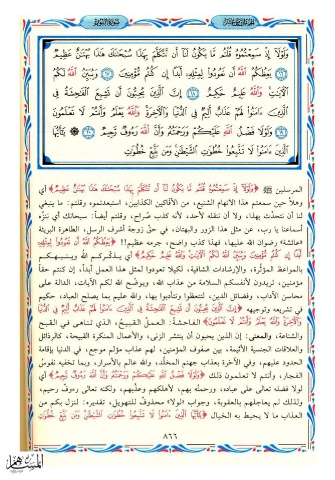 وَلَوْلَا إِذْ سَمِعْتُمُوهُ قُلْتُم مَّا يَكُونُ لَنَا أَن نَّتَكَلَّمَ بِهَٰذَا سُبْحَانَكَ هَٰذَا بُهْتَانٌ عَظِيمٌ
١٦ يَعِظُكُمُ اللَّهُ أَن تَعُودُوا لِمِثْلِهِ أَبَدًا إِن كُنتُم مُّؤْمِنِينَ ١٧ وَيُبَيِّنُ اللَّهُ لَكُمُ
الْآيَاتِ وَاللَّهُ عَلِيمٌ حَكِيمٌ ١٨ إِنَّ الَّذِينَ يُحِبُّونَ أَن تَشِيعَ الْفَاحِشَةُ فِي
الَّذِينَ آمَنُوا لَهُمْ عَذَابٌ أَلِيمٌ فِي الدُّنْيَا وَالْآخِرَةِ وَاللَّهُ يَعْلَمُ وَأَنتُمْ لَا تَعْلَمُونَ
١٩ وَلَوْلَا فَضْلُ اللَّهِ عَلَيْكُمْ وَرَحْمَتُهُ وَأَنَّ اللَّهَ رَءُوفٌ رَّحِيمٌ ٢٠ يَا أَيُّهَا
الَّذِينَ آمَنُوا لَا تَتَّبِعُوا خُطُوَاتِ الشَّيْطَانِ وَمَن يَتَّبِعْ خُطُوَاتِ
المرسلين ﷺ ﴿وَلَوْلَا إِذْ سَمِعْتُمُوهُ قُلْتُم مَّا يَكُونُ لَنَا أَن نَّتَكَلَّمَ بِهَٰذَا سُبْحَانَكَ هَٰذَا بُهْتَانٌ عَظِيمٌ﴾ أي
وهلاّ حين سمعتم هذا الاتهام الشنيع، من الأفّاكين الكاذبين، استبعدتموه وقلتم: ما ينبغي
لنا أن نتحدَّث بهذا، ولا أن ننقله لأحد، لأنه كذب صُراح، وقلتم أيضاً: سبحانك أي ننزّه
أسماعنا يا رب، عن مثل هذا الزور والبهتان، في حقّ زوجة أشرف الرسل، الطاهرة البريئة
«عائشة رضوان الله عليها»، فهذا كذب واضح، جرمه عظيم!! ﴿يَعِظُكُمُ اللَّهُ أَن تَعُودُوا لِمِثْلِهِ
أَبَدًا إِن كُنتُم مُّؤْمِنِينَ وَيُبَيِّنُ اللَّهُ لَكُمُ الْآيَاتِ وَاللَّهُ عَلِيمٌ حَكِيمٌ﴾ أي يذكّركم الله وينبهكم
بالمواعظ المؤثّرة، والإرشادات الشافية، لكيلا تعودوا لمثل هذا العمل أبداً، إن كنتم حقاً
مؤمنين، تريدون لأنفسكم السلامة من عذاب الله، ويوضّح الله لكم الآيات، الدالة على
محاسن الآداب، وفضائل الدين، لتتعظوا وتتأدبوا بها، والله عليم بما يصلح العباد، حكيم
في تشريعه وتوجيهه ﴿إِنَّ الَّذِينَ يُحِبُّونَ أَن تَشِيعَ الْفَاحِشَةُ فِي الَّذِينَ آمَنُوا لَهُمْ عَذَابٌ أَلِيمٌ فِي الدُّنْيَا
وَالْآخِرَةِ وَاللَّهُ يَعْلَمُ وَأَنتُمْ لَا تَعْلَمُونَ﴾ الفاحشة: العملُ القبيح، الذي تناهى في القبح
والشناعة، والمعنى: إن الذين يحبون أن ينتشر الزنى، والأعمال المنكرة القبيحة، كالرذائل
والعلاقات الجنسية الأثيمة، بين صفوف المؤمنين، لهم عذاب مؤلم موجع، في الدنيا بإقامة
الحدود عليهم، وفي الآخرة بعذاب جهنم المخلّد، والله عالم بالأسرار، وبما تخفيه نفوس
الفجار، وأنتم لا تعلمون ذلك ﴿وَلَوْلَا فَضْلُ اللَّهِ عَلَيْكُمْ وَرَحْمَتُهُ وَأَنَّ اللَّهَ رَءُوفٌ رَّحِيمٌ﴾ أي
لولا فضله تعالى على عباده، ورحمتُه بهم، لأهلكهم وعذَّبهم، ولكنه تعالى رءوفٌ رحيم،
ولذلك لم يعاجلهم بالعقوبة، وجواب «لولا» محذوف للتهويل، تقديره: لنزل بكم من
العذاب ما لا يحيط به الخيال ﴿يَا أَيُّهَا الَّذِينَ آمَنُوا لَا تَتَّبِعُوا خُطُوَاتِ الشَّيْطَانِ وَمَن يَتَّبِعْ خُطُوَاتِ
٨٦٦